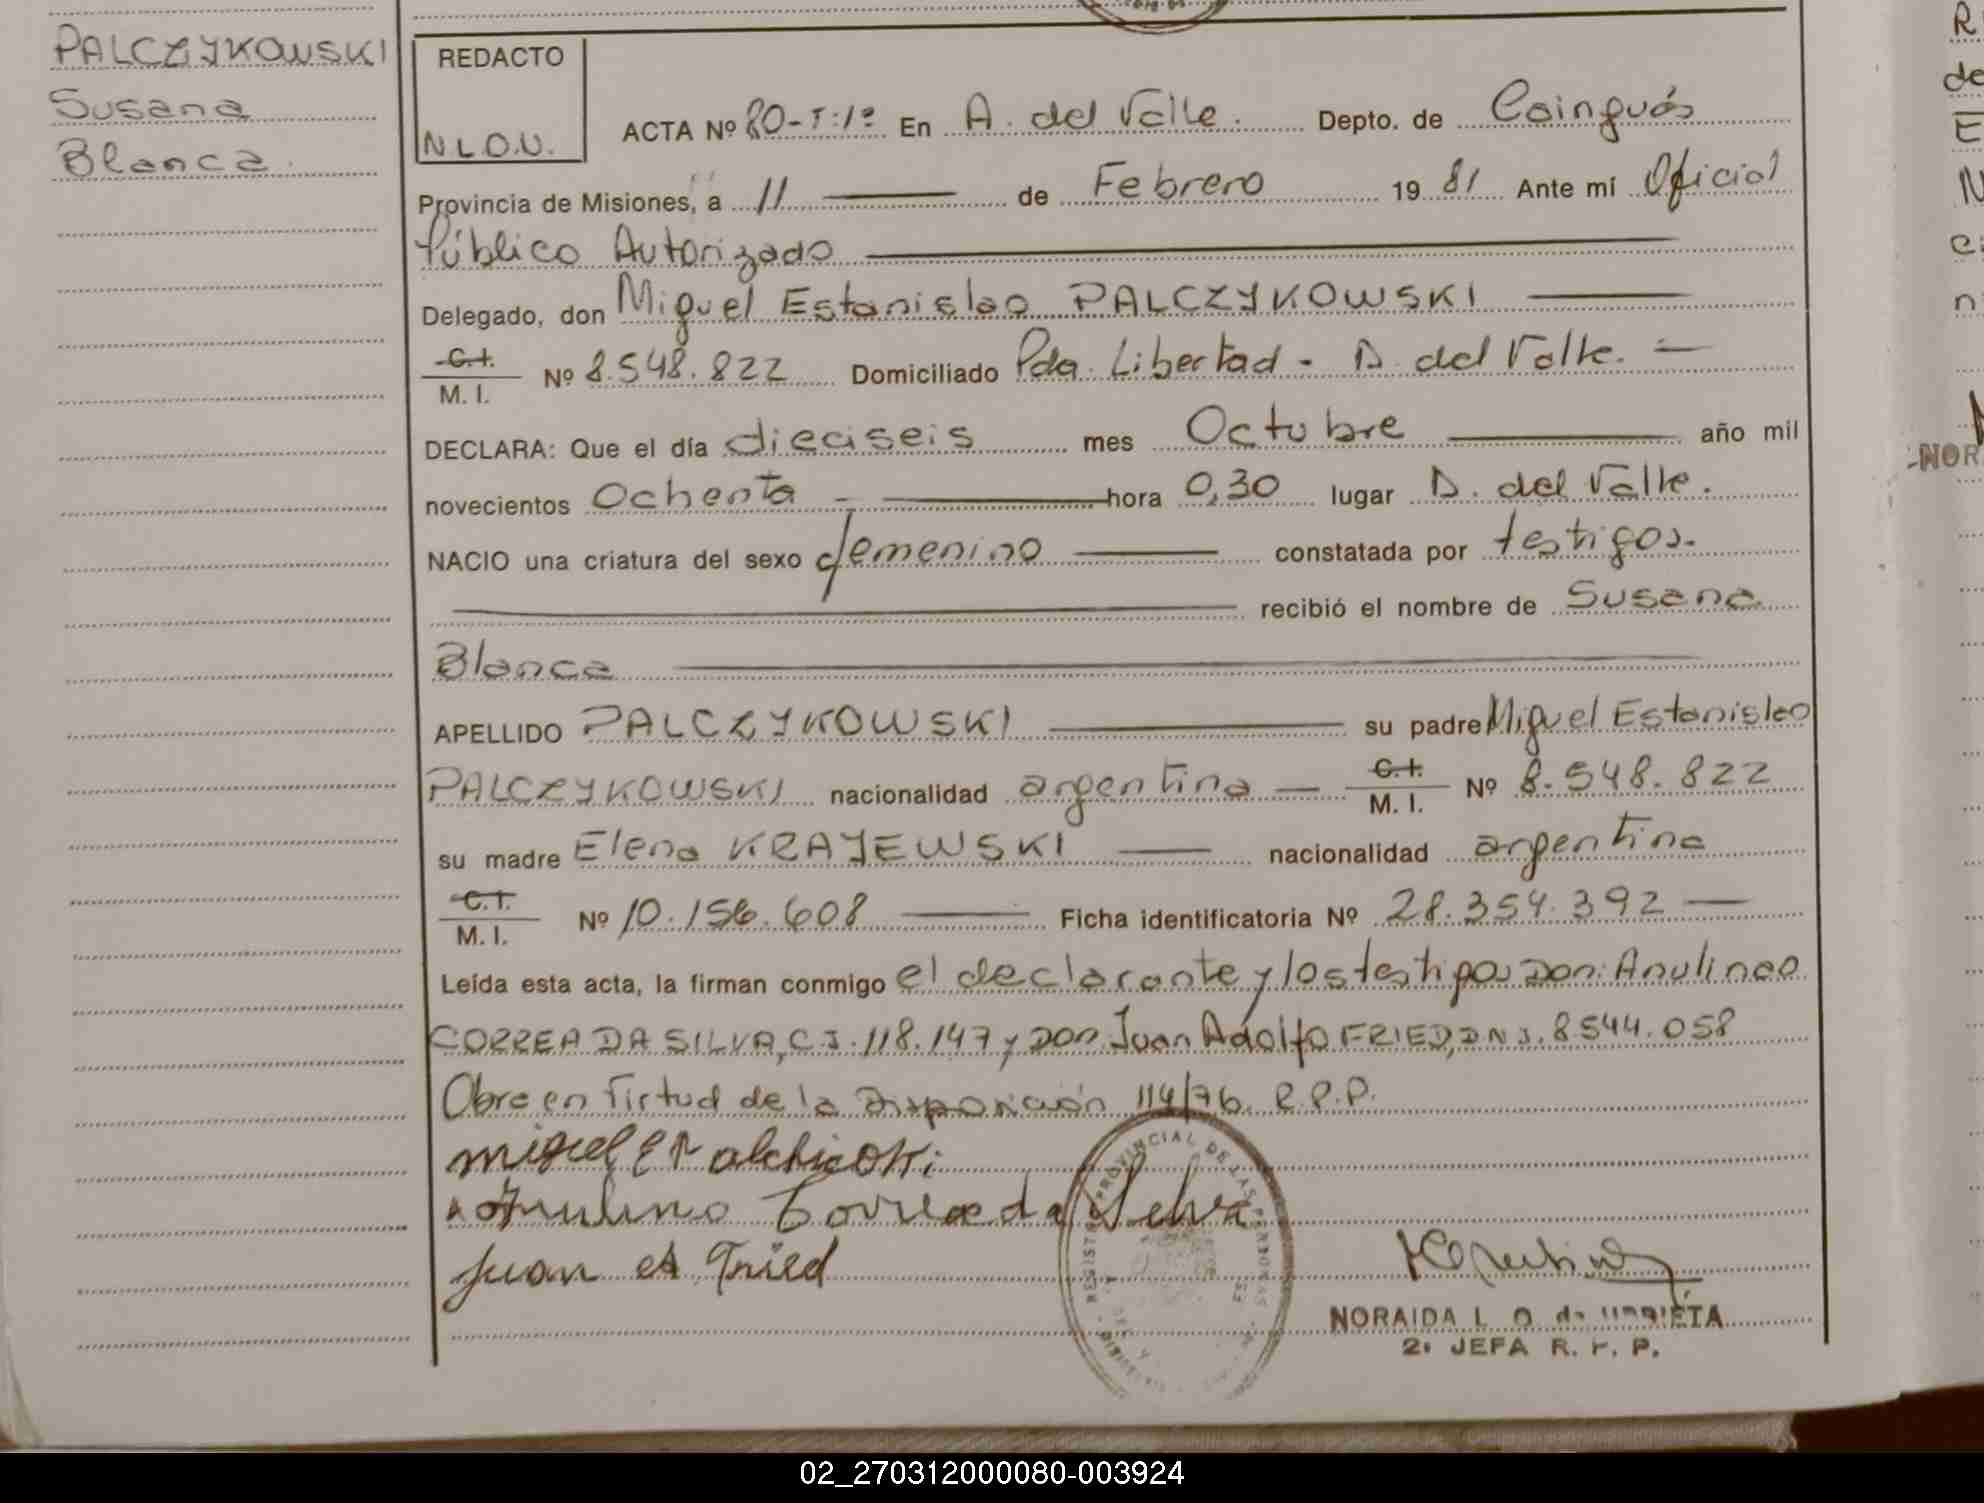 PALCZYKOWSKI
Susana
Blanca
REDACTO
N L.O.U.
ACTA Nº 80-T:1º En A. del Valle. Depto. de Cainguás
Provincia de Misiones, a 11 de Febrero 19 81 Ante mí Oficial
Público Autorizado
Delegado, don Miguel Estanislao PALCZYKOWSKI
C.I.
M. I. Nº 8.548.822 Domiciliado Pda. Libertad - A. del Valle.
DECLARA: Que el día dieciseis mes Octubre año mil
novecientos Ochenta hora 0,30 lugar A. del Valle.
NACIO una criatura del sexo femenino constatada por testigos.
recibió el nombre de Susana
Blanca
APELLIDO PALCZYKOWSKI su padre Miguel Estanislao
PALCZYKOWSKI nacionalidad argentina C.I. M. I. Nº 8.548.822
su madre Elena KRAJEWSKI nacionalidad argentina
C.I.
M. I. Nº 10.156.608 Ficha identificatoria Nº 28.354.392
Leída esta acta, la firman conmigo el declarante y los testigos Don: Anulineo
CORREA DA SILVA, C.I. 118.147 y Don Juan Adolfo FRIED, D N J. 8.544.058
Obra en Virtud de la Disposición 114/76 R.P.P.
miguel E
Correa da Selva
Juan A Fried
REGISTRO PROVINCIAL DE LAS PERSONAS
NORAIDA L. O. de URRIETA
2ª JEFA R. P. P.
R
de
E
N
NOR
02_270312000080-003924